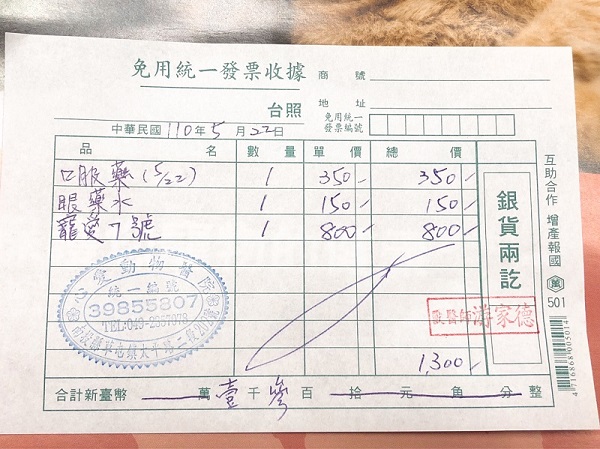 免用統一發票收據
商 號
台照
地 址
中華民國 110 年 5 月 22 日
免用統一發票編號
品 名 數 量 單 價 總 價
口服藥(5/22) 1 350 350
眼藥水 1 150 150
寵愛7號 1 800 800
銀貨兩訖
動物醫院
統一編號
39855807
獸醫師游家德
1,300
合計新臺幣 萬壹千參百拾元角分整
互助合作 增產報國
萬 501
4716868005014